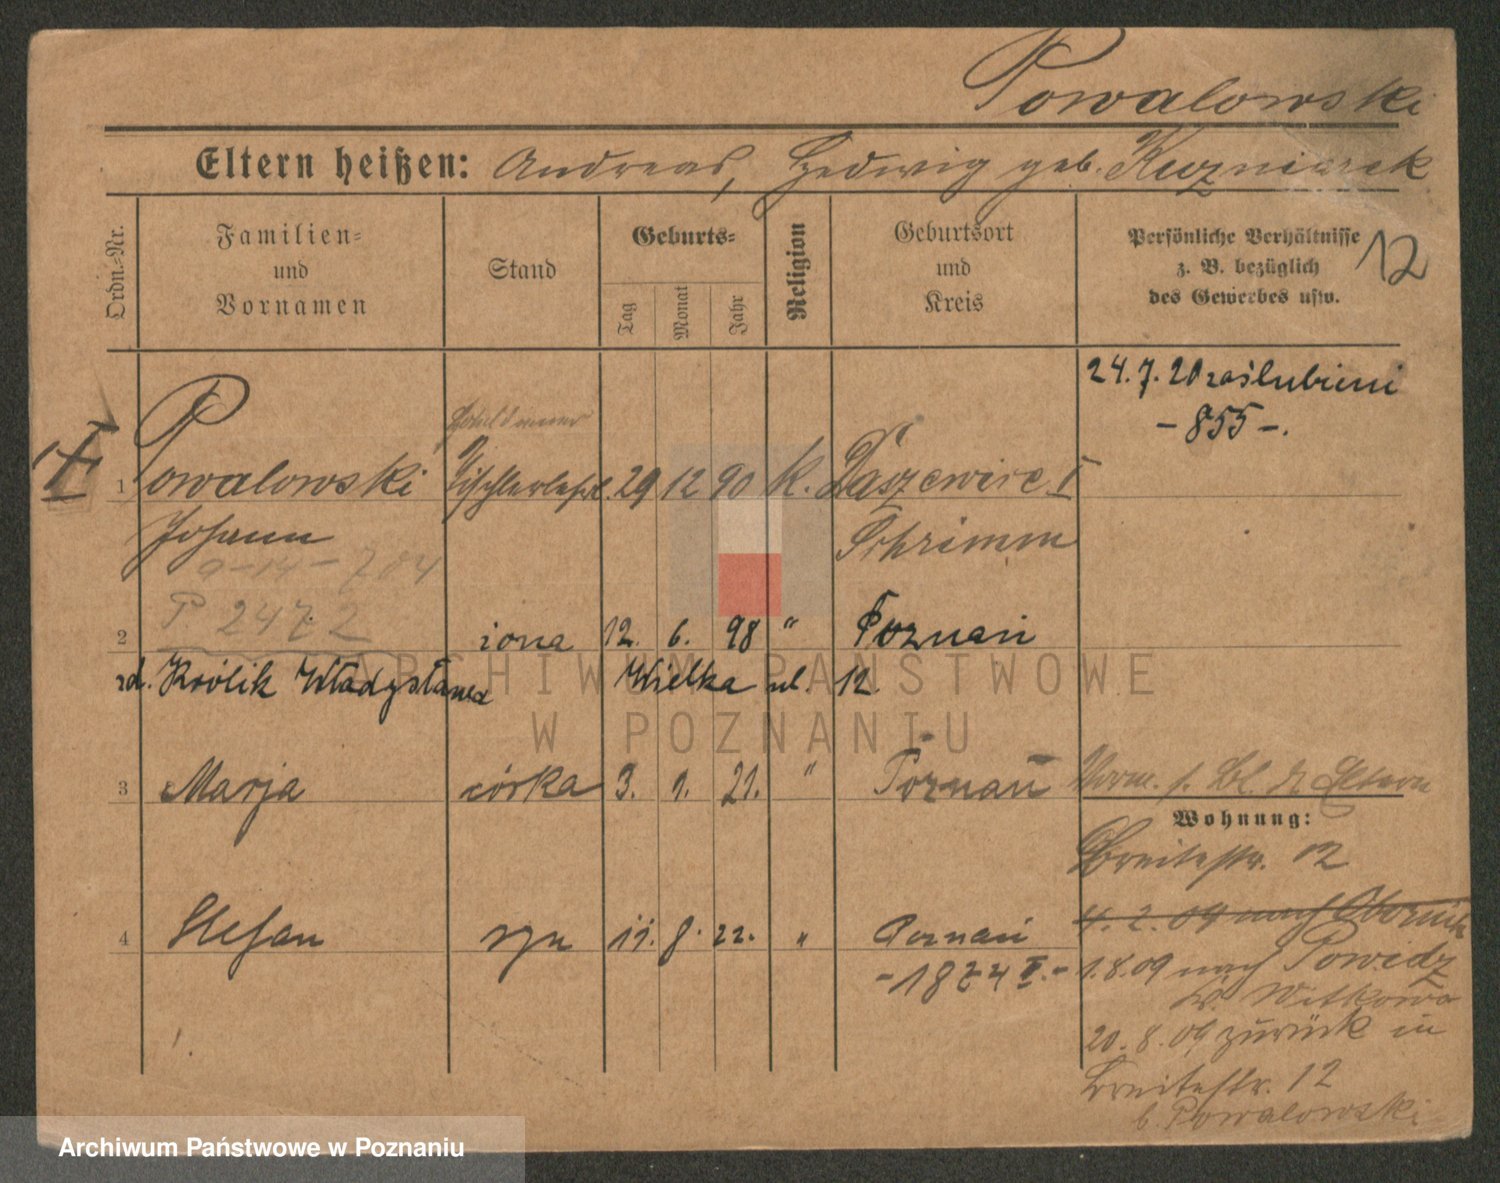 Powalowski
Eltern heißen: Andreas, Hedwig geb. Kuzniarek
Ordn.-Nr.
Familien-
und
Vornamen
Stand
Geburts-
Tag
Monat
Jahr
Religion
Geburtsort
und
Kreis
Persönliche Verhältnisse
z. B. bezüglich
des Gewerbes usw.
12
24.7.20 zaślubieni
- 855 -.
1 Powalowski Tischlerlehrl. 29 12 90 k. Daszewice I
Johann Schrimm
9-14-704
P 2472
2 żona 12. 6. 98 " Poznań
zd. Królik Władysława Wielka ul. 12.
3 Marja córka 3. 1. 21. " Poznań
Wohnung:
Breitestr. 12
4 Stefan syn 11. 8. 22. " Poznań
4.2.09 nach Obornik
- 1874 II. -
1.8.09 nach Powidz
Kr. Witkowo
20.8.09 zurück in
Breitestr. 12
b. Powalowski
ARCHIWUM PAŃSTWOWE
W POZNANIU
Archiwum Państwowe w Poznaniu